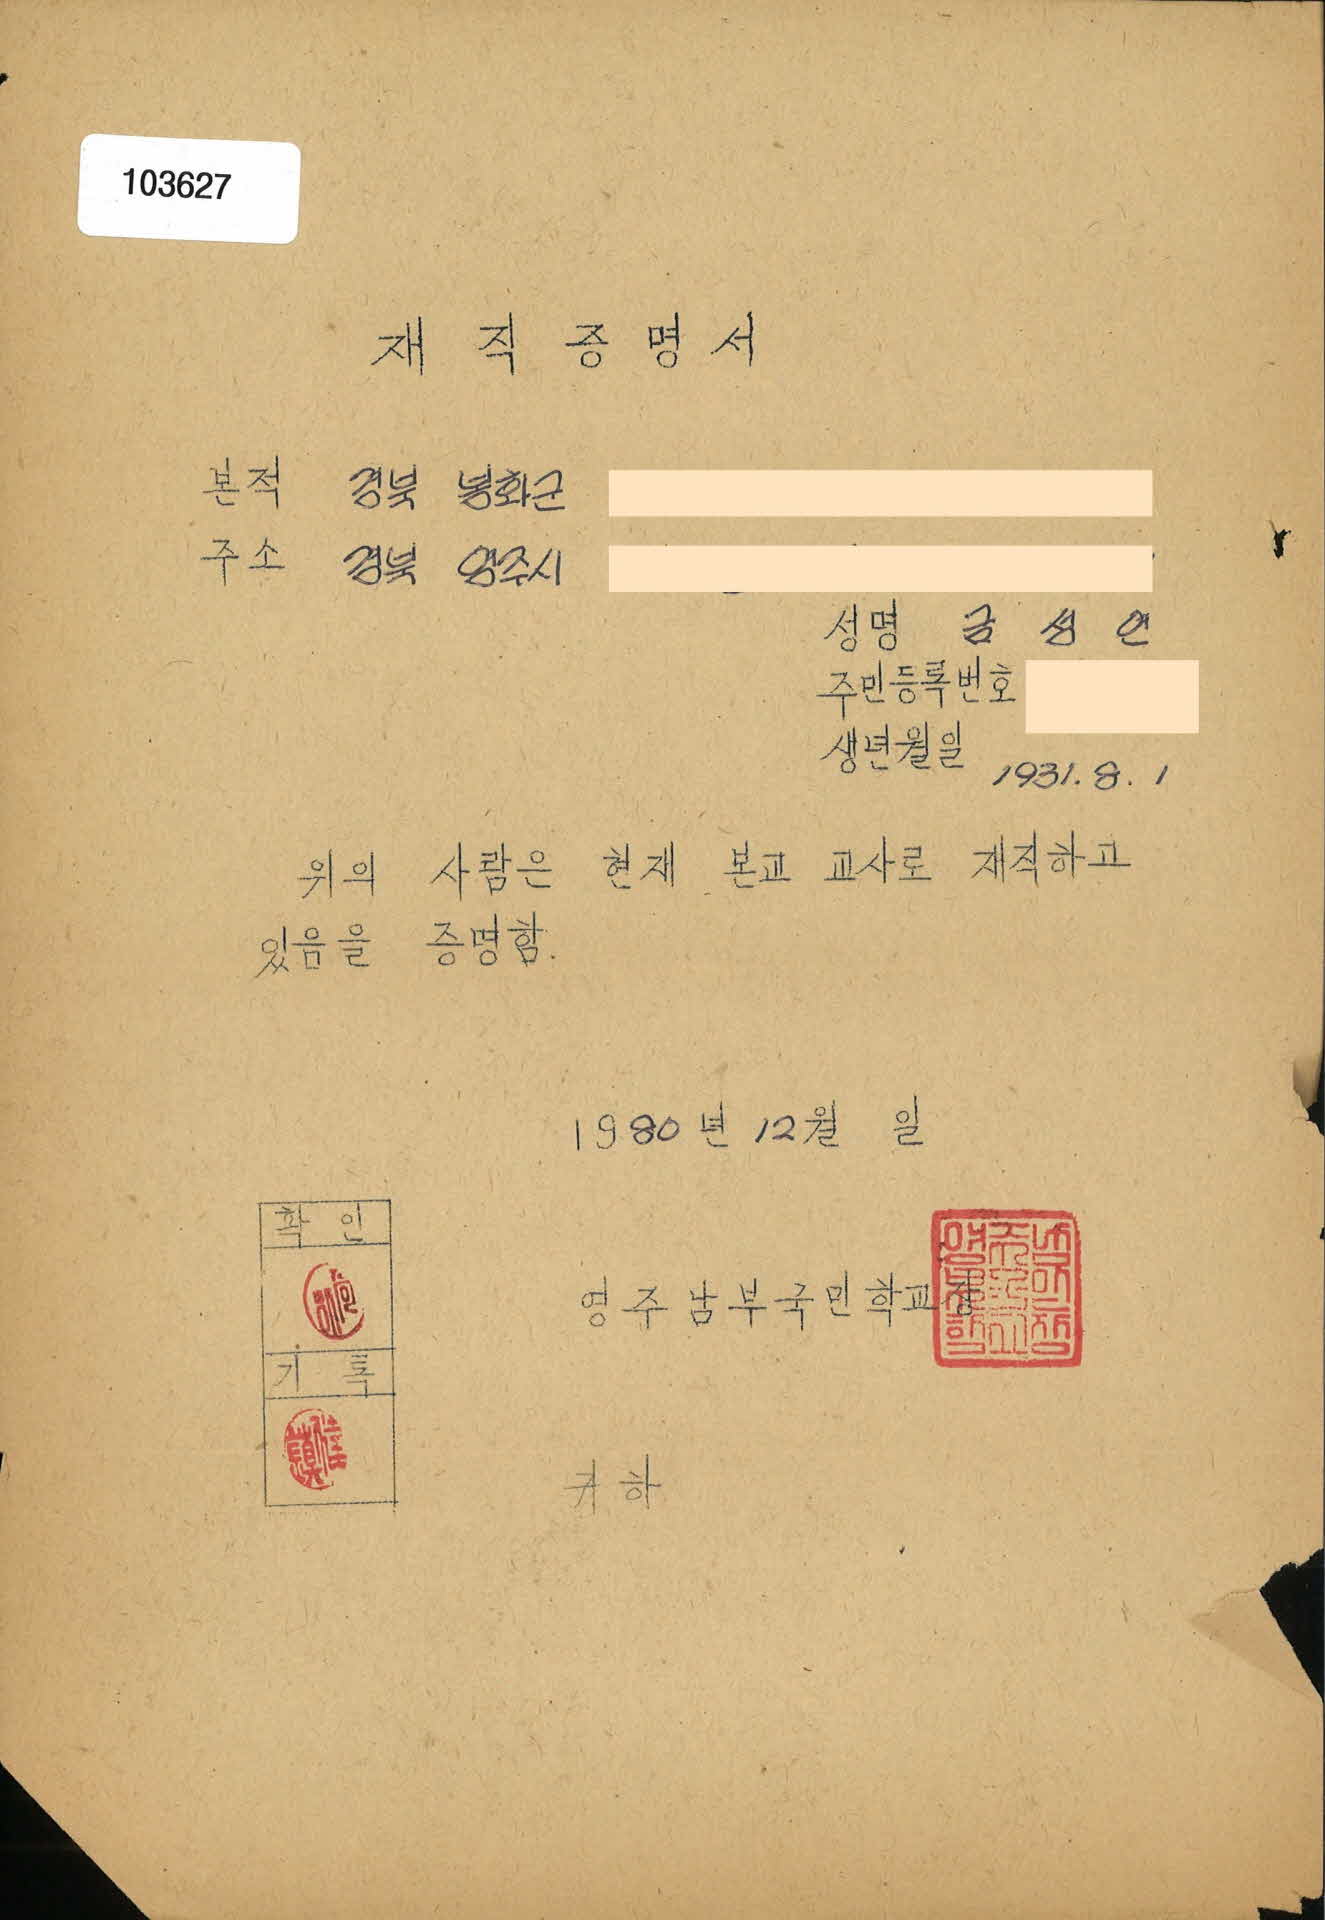 103627
재 직 증 명 서
본적 경북 봉화군
주소 경북 영주시
성명 금 성 연
주민등록번호
생년월일 1931. 8. 1
위의 사람은 현재 본교 교사로 재직하고
있음을 증명함.
1980년 12월 일
확 인
영주남부국민학교장
기 록
귀하